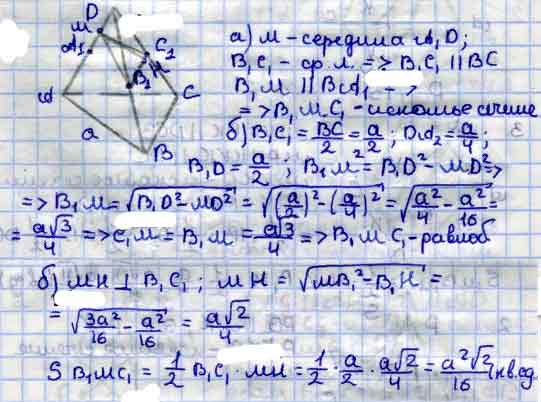 D
M
A₁
C₂
B₁
H
A
C
a
B
а) M – середина A₁D;
B₁C₁ – ср. л. => B₁C₁ || BC
B₁M || BA₁ – >
=> B₁MC₁ – искомое сечение
б) B₁C₁ = BC/2 = a/2; DA₂ = a/4;
B₁D = a/2; B₁M² = B₁D² – MD² =>
=> B₁M = √(B₁D² – MD²) = √((a/2)² – (a/4)²) = √(a²/4 – a²/16) =
= a√3/4 => C₁M = B₁M = a√3/4 => B₁MC₁ – равноб
б) MH ⊥ B₁C₁; MH = √(MB₁² – B₁H²) =
= √(3a²/16 – a²/16) = a√2/4
S B₁MC₁ = 1/2 B₁C₁ · MH = 1/2 · a/2 · a√2/4 = a²√2/16 кв.ед